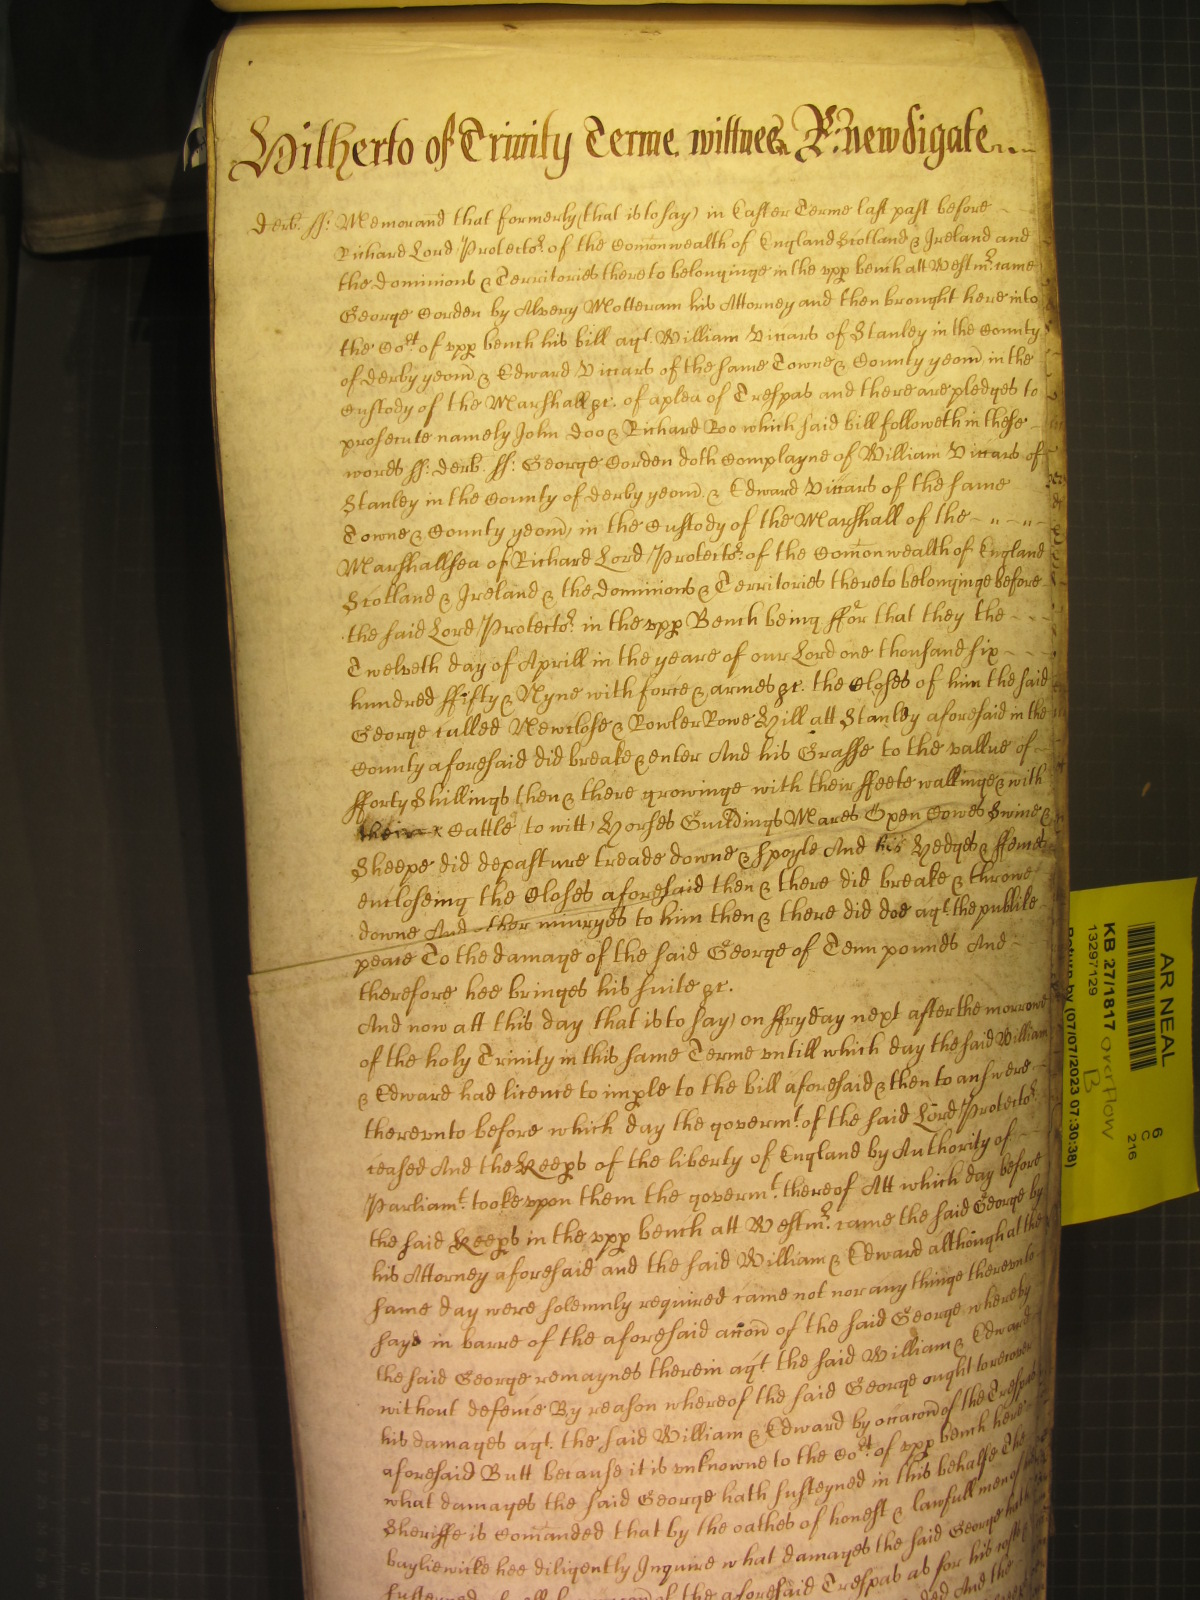 Hitherto of Trinity Terme wittnes R: Newdigate
Derb. ss: Memorand that formerly (that is to say) in Easter Terme last past before
Richard Lord Protector of the Comonwealth of England Scotland & Ireland and
the dominions & Territories thereto belonginge in the vpp bench att Westmr. came
George Gorden by Alvery Motteram his Attorney and then brought here into
the Cort. of vpp bench his bill agt. William Viccars of Stanley in the County
of derby yeom & Edward Viccars of the same Towne & County yeom in the
Custody of the Marshall &c. of a plea of Trespas and there are pledges to
prosecute namely John Doo & Richard Roo which said bill followeth in these
words ss: derb. ss: George Gorden doth Complayne of William Viccars of
Stanley in the County of derby yeom & Edward Viccars of the same
Towne & County yeom, in the Custody of the Marshall of the
Marshallsea of Richard Lord Protector. of the Comonwealth of England
Scotland & Ireland & the dominions & Territories thereto belonginge before
the said Lord Protector. in the vpp Bench being ffor that they the
Twelveth day of Aprill in the yeare of our Lord one thousand six
hundred ffifty & Nyne with force & armes &c. the Closes of him the said
George called Newclose & Rowler Rowe Hill att Stanley aforesaid in the
County aforesaid did breake & enter And his Grasse to the vallue of
fforty Shillings then & there growinge with their ffeete walkinge & with
Cattle (to witt) Horses Guildings Mares Oxen Cowes Swine &
Sheepe did depasture treade downe & spoyle And his Hedges & ffences
encloseing the Closes aforesaid then & there did breake & throwe
downe And other iniuryes to him then & there did doe agt. the publike
peace To the damage of the said George of Tenn pounds And
therefore hee bringes his suite &c.
And now att this day that is to say) on ffryday next after the morrowe
of the holy Trinity in this same Terme vntill which day the said William
& Edward had licence to imple to the bill aforesaid & then to answere
therevnto before which day the governt. of the said Lord Protector.
ceased And the Keeps of the liberty of England by Authority of
Parliamt. tooke vpon them the governt. thereof Att which day before
the said Keeps in the vpp bench att Westmr. came the said George by
his Attorney aforesaid and the said William & Edward although at the
same day were solemnly required came not nor any thinge therevnto
sayd in barre of the aforesaid accon of the said George whereby
the said George remaynes therein agt. the said William & Edward
without defence By reason whereof the said George ought to recover
his damages agt. the said William & Edward by occacon of the Trespas
aforesaid Butt because it is vnknowne to the Cort. of vpp bench here
what damages the said George hath susteyned in this behalfe The
Sheriffe is Comanded that by the oathes of honest & lawfull men of
bayliewicke hee diligently Inquire what damages the said George hath
of the aforesaid Trespas as for his costs
And the
AR NEAL
KB 27/1817 overflow
B
13297129
6
C
216
Return by (07/07/2023 07:30:38)